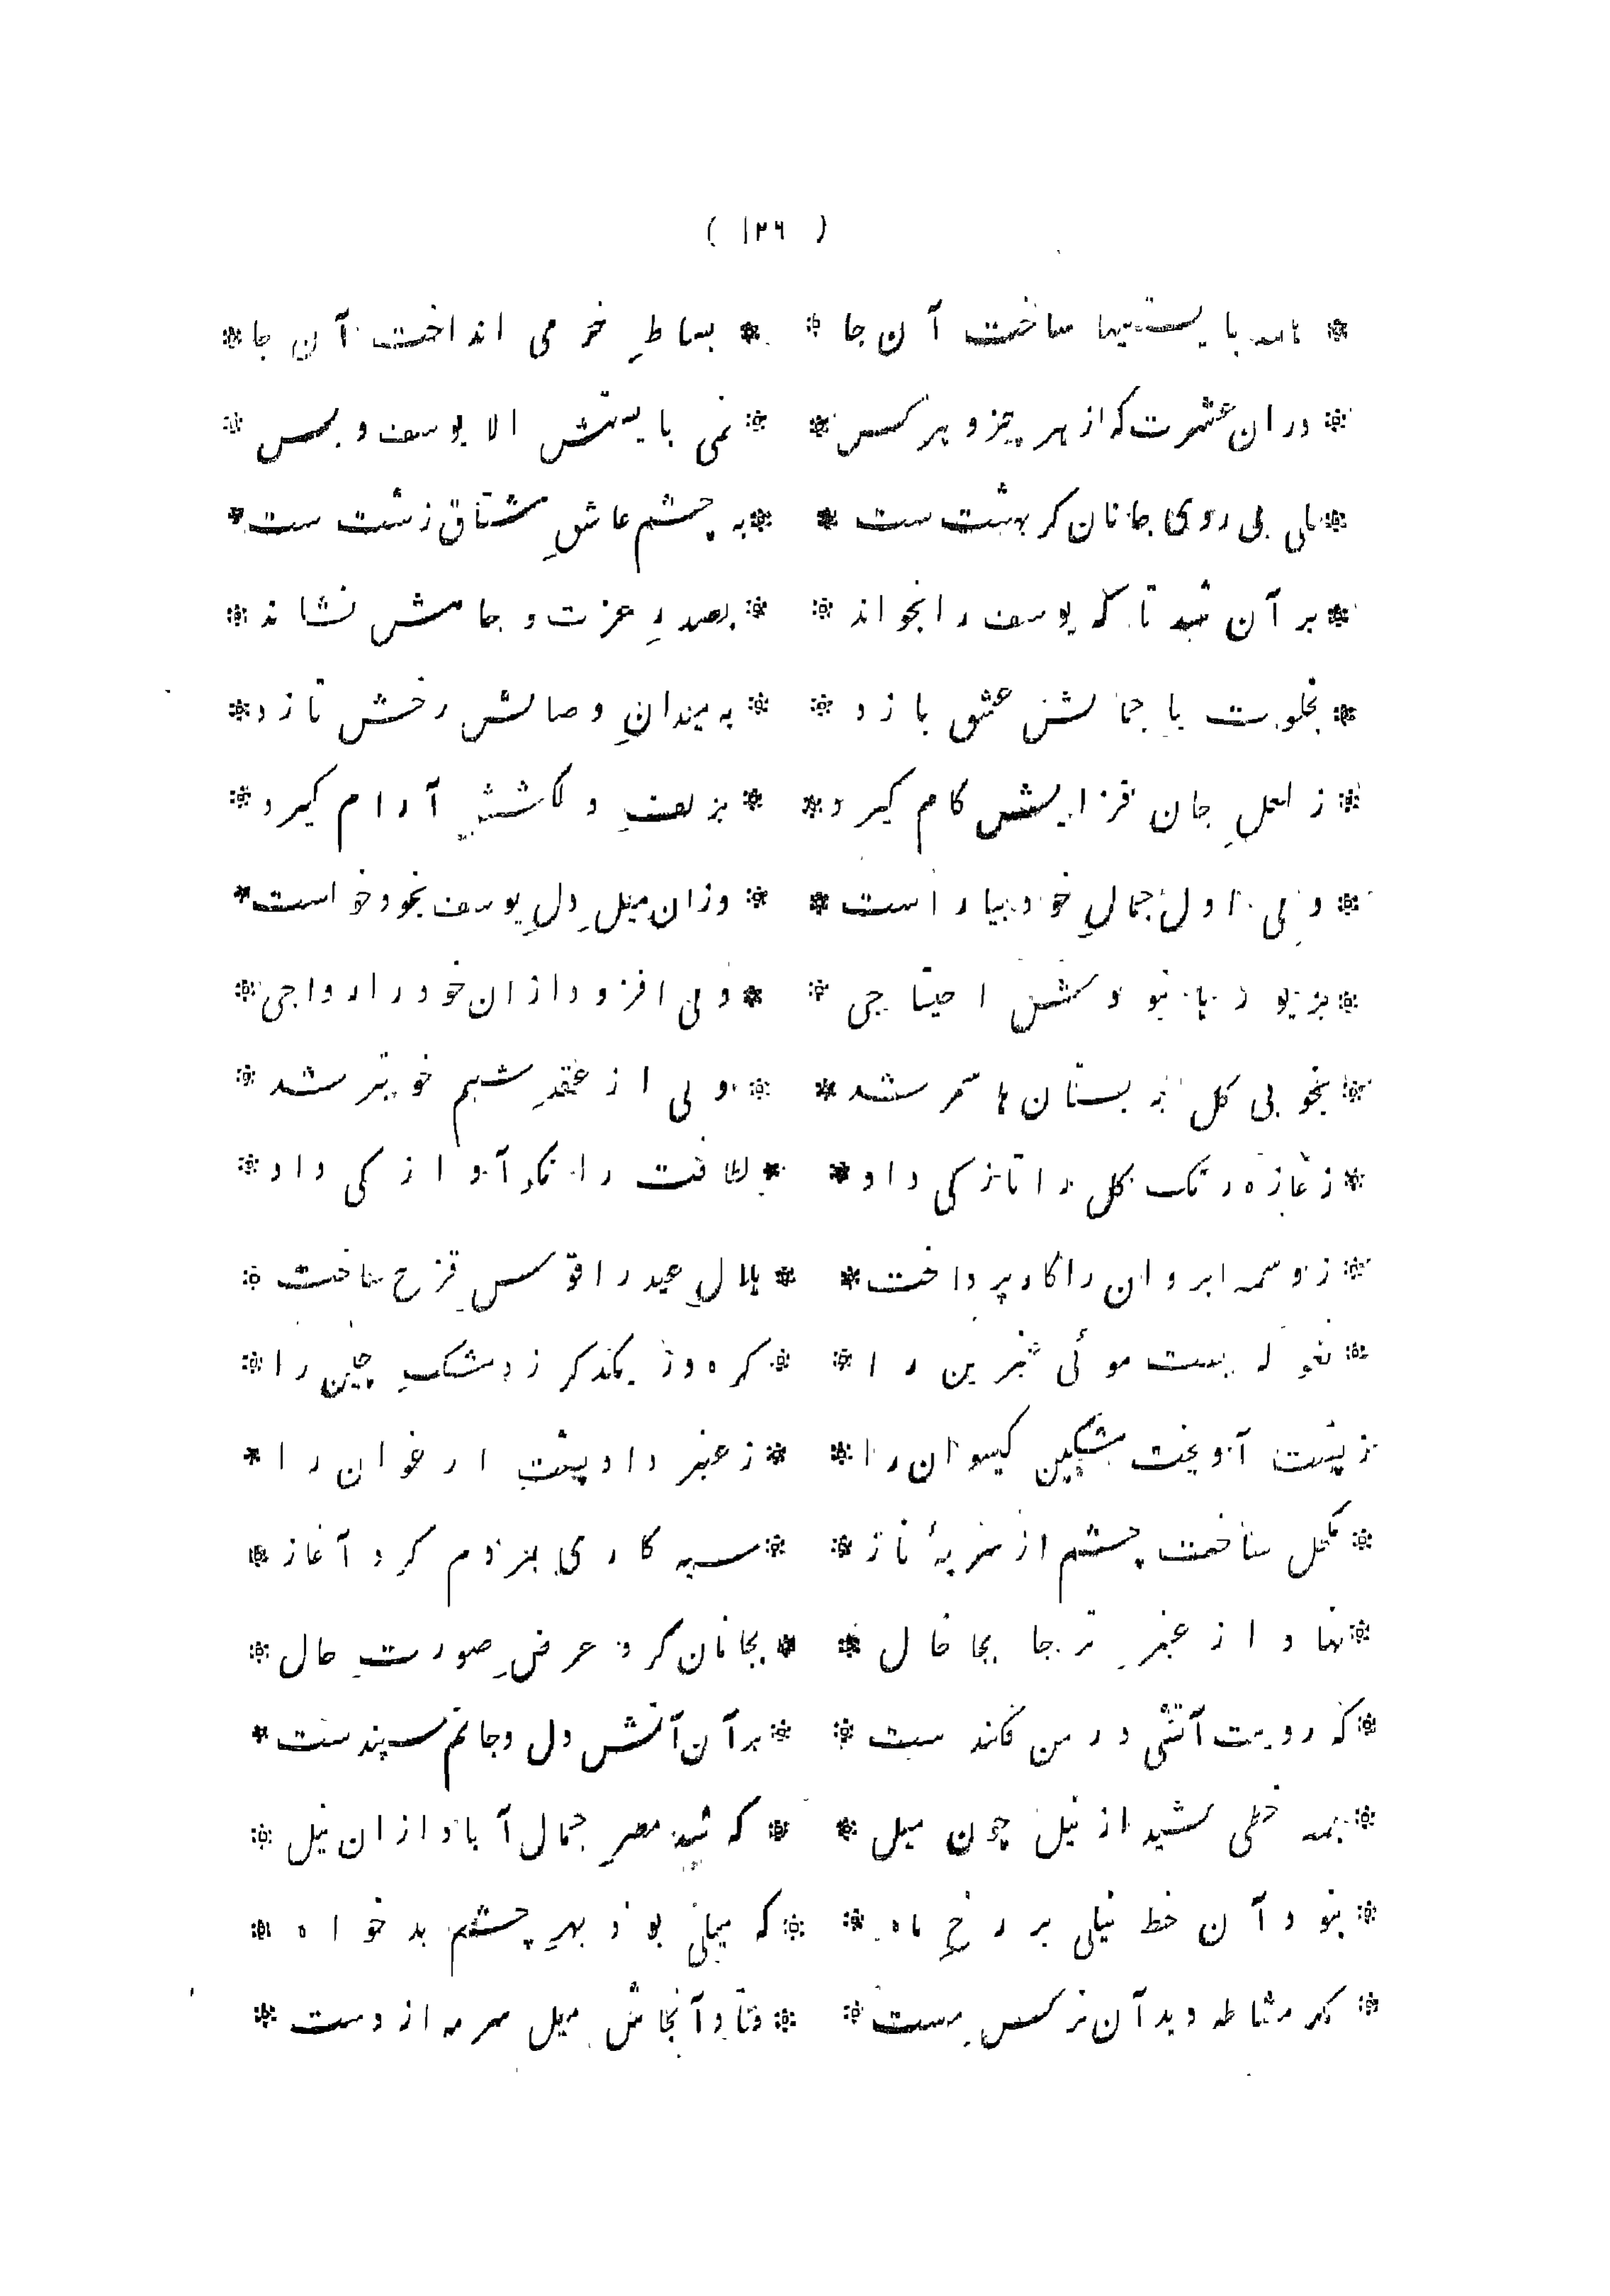 ( ۱۲۶ )
* همه بایستیها ساخت آن جا * * بساطِ خرمی انداخت آن جا *
* دران عشرت که از هر چیز و هر کس * * نمی بایستش الا یوسف و بس *
* بلی بی روی جانان گر بهشت ست * * به چشم عاشقِ مشتاق زشت ست *
* بر آن شد تا که یوسف را بخواند * * بصدرِ عزت و جاهش نشاند *
* بخلوت با جمالش عشق بازد * * به میدانِ وصالش رخش تازد *
* ز لعلِ جان فزایش کام گیرد * * بزلفِ دلکشش آرام گیرد *
* ولی اول جمالِ خود بیاراست * * وزان میلِ دلِ یوسف بخود خواست *
* بزیورها نبودش احتیاجی * * ولی افزود ازان خود را رواجی *
* بخوبی گل به بستان ها سمر شد * * ولی از عقدِ شبنم خوبتر شد *
* ز غازه رنگ گل را تازگی داد * * لطافت را نکو آوازگی داد *
* ز وسمه ابروان را کار پرداخت * * هلالِ عید را قوسِ قزح ساخت *
* نغوله بست موئی عنبرین را * * گره در یکدگر زد مشکِ چین را *
ز پشت آویخت مشکین گیسوان را * * ز عنبر داد پشتِ ارغوان را *
* مکحل ساخت چشم از سرمهٔ ناز * * سیه کاری بمردم کرد آغاز *
* نهاد از عنبرِ تر جا بجا خال * * بجانان کرد عرضِ صورتِ حال *
* که رویت آتشی در من فکند ست * * بر آن آتش دل و جانم سپند ست *
* بمه خطی کشید از نیل چون میل * * که شد مصرِ جمال آباد ازان نیل *
* نبود آن خط نیلی بر رخِ ماه * * که میلی بود بهرِ چشمِ بدخواه *
* مگر مشاطه دید آن نرگسِ مست * * فتاد آنجاش میل سرمه از دست *